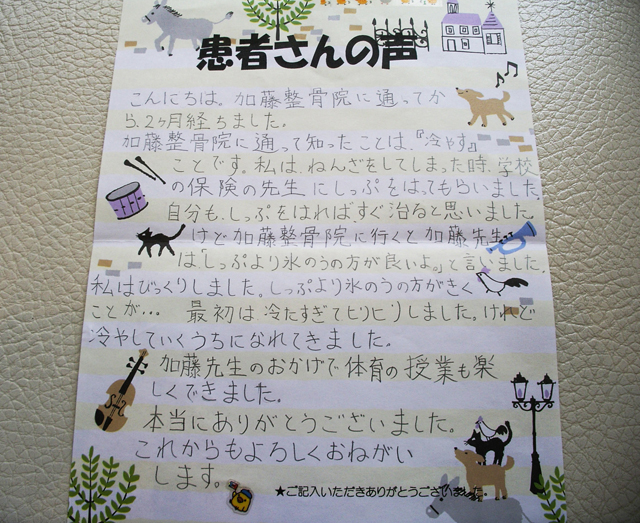 患者さんの声
こんにちは。加藤整骨院に通ってか
ら、2ヶ月経ちました。
加藤整骨院に通って知ったことは、『冷やす』
ことです。私は、ねんざをしてしまった時、学校
の保険の先生にしっぷをはってもらいました。
自分も、しっぷをはればすぐ治ると思いました。
けど加藤整骨院に行くと加藤先生
は「しっぷより氷のうの方が良いよ。」と言いました。
私はびっくりしました。しっぷより氷のうの方がきく
ことが… 最初は冷たすぎてヒリヒリしました。けれど
冷やしていくうちになれてきました。
加藤先生のおかげで体育の授業も楽
しくできました。
本当にありがとうございました。
これからもよろしくおねがい
します。
★ご記入いただきありがとうございました。